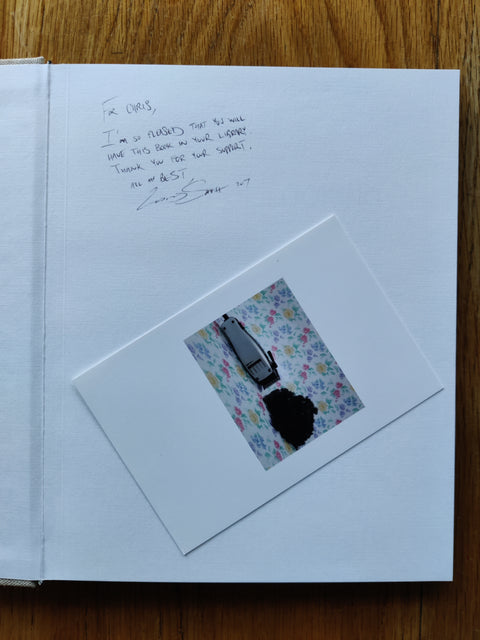 For CHRIS,
I'm SO PLEASED THAT YOU WILL
HAVE THIS BOOK IN YOUR LIBRARY.
THANK YOU FOR YOUR SUPPORT.
ALL MY BEST